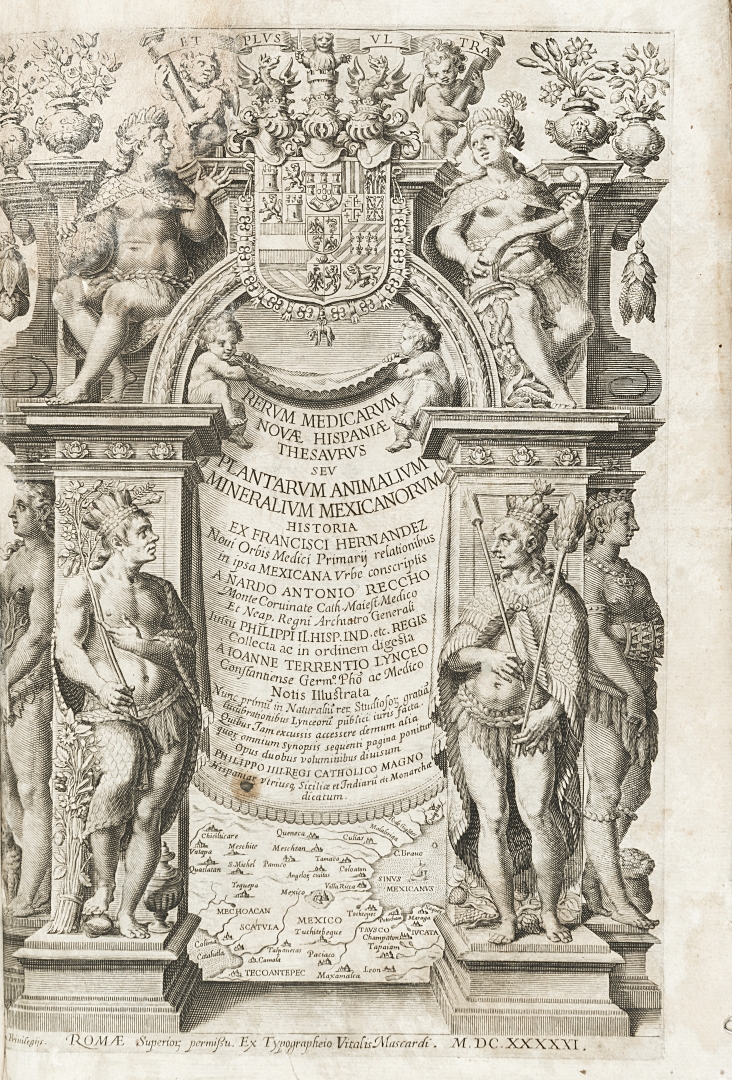 ET PLUS UL TRA
RERVM MEDICARVM
NOVÆ HISPANIÆ
THESAVRVS
SEV
PLANTARVM ANIMALIVM
MINERALIVM MEXICANORVM
HISTORIA
EX FRANCISCI HERNANDEZ
Noui Orbis Medici Primarij relationibus
in ipsa MEXICANA Vrbe conscriptis
A NARDO ANTONIO RECCHO
Monte Coruinate Cath. Maiest. Medico
Et Neap. Regni Archiatro Generali
Iussu PHILIPPI II. HISP. IND. etc. REGIS
Collecta ac in ordinem digesta
A IOANNE TERRENTIO LYNCEO
Constantiense Germ.º Phō ac Medico
Notis Illustrata
Nunc primū in Naturaliū rer. Studiosor. gratiā
lucubrationibus Lynceorū publici iuris facta.
Quibus Jam excussis accessere demum alia
quor. omnium Synopsis sequenti pagina ponitur
Opus duobus voluminibus diuisum
PHILIPPO IIII. REGI CATHOLICO MAGNO
Hispaniar. vtriusq. Siciliæ et Indiarū etc Monarchæ
dicatum.
Chichilicare Queneca Culias
Valapa Meschite Meschean C. Brauo
Quaxlatan S. Michel Panuco Tamaco Coloatan
Angelor. ciuitas SINVS
Teguepa Mexico Villa Ricca MEXICANVS
MECHOACAN MEXICO
SCATVLA Tuchitebeque TAVSCO IVCATA
Champaton
Colima Talpanecas Paciaco Tapaiam
Camola Leon
TECOANTEPEC Maxamalca
Privilegijs. ROMÆ Superior. permissu. Ex Typographeio Vitalis Mascardi. M. DC. XXXXXI.